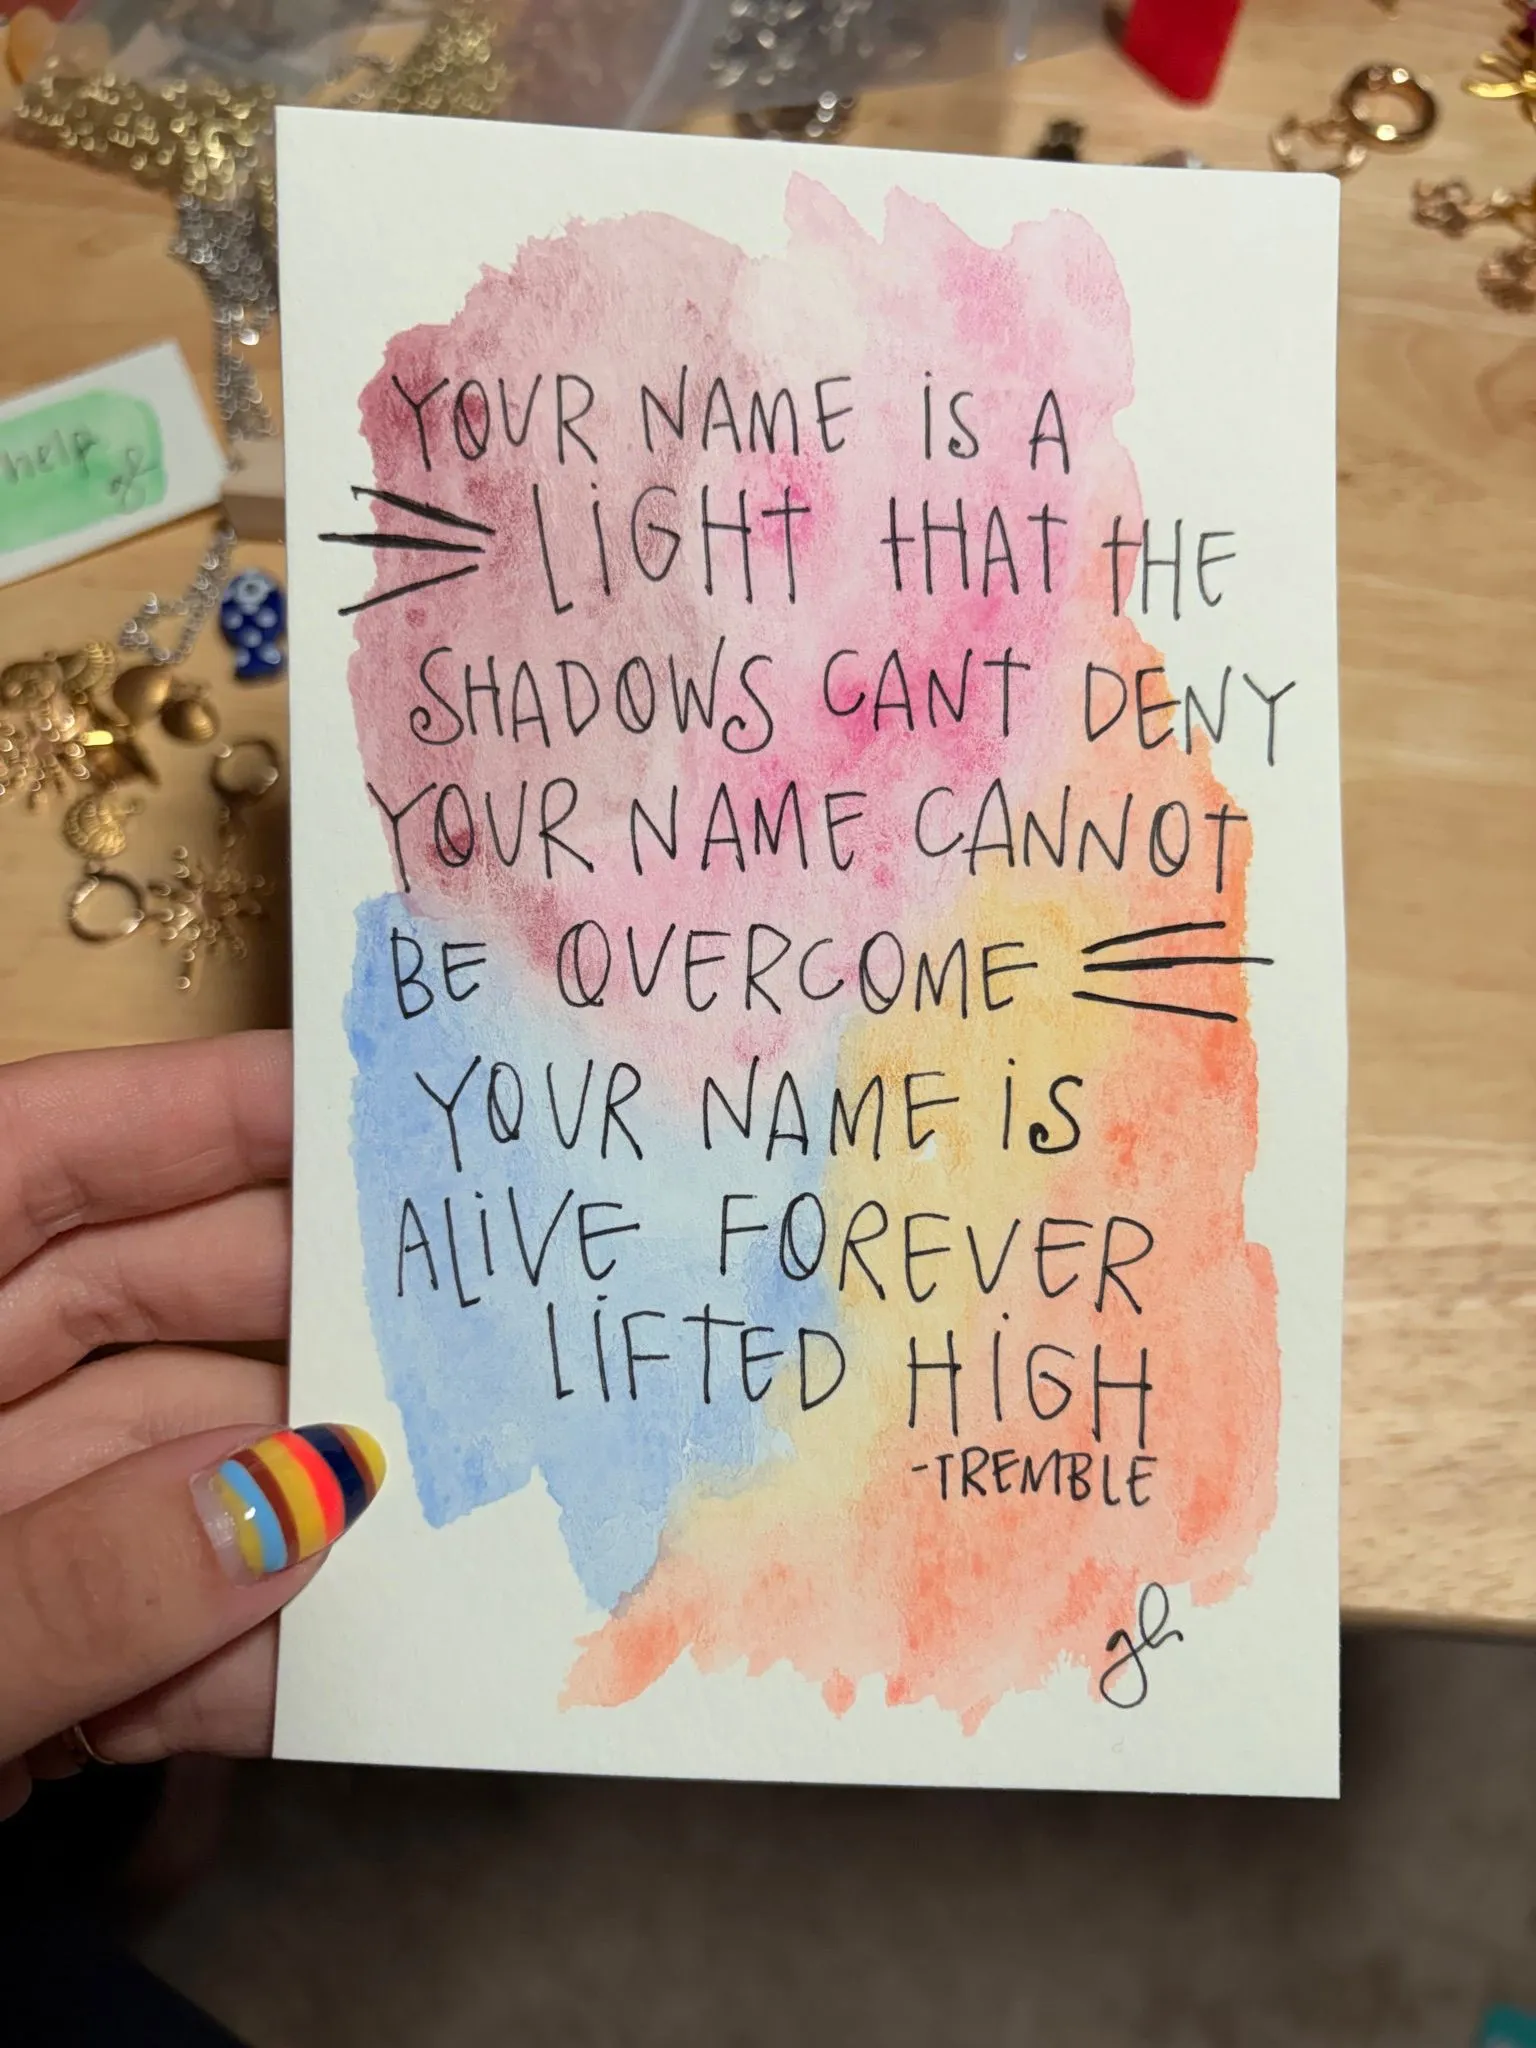 YOUR NAME iS A
LiGHT THAT THE
SHADOWS CANT DENY
YOUR NAME CANNOT
BE OVERCOME
YOUR NAME iS
ALiVE FOREVER
LiFTED HiGH
-TREMBLE
gh
help
gh